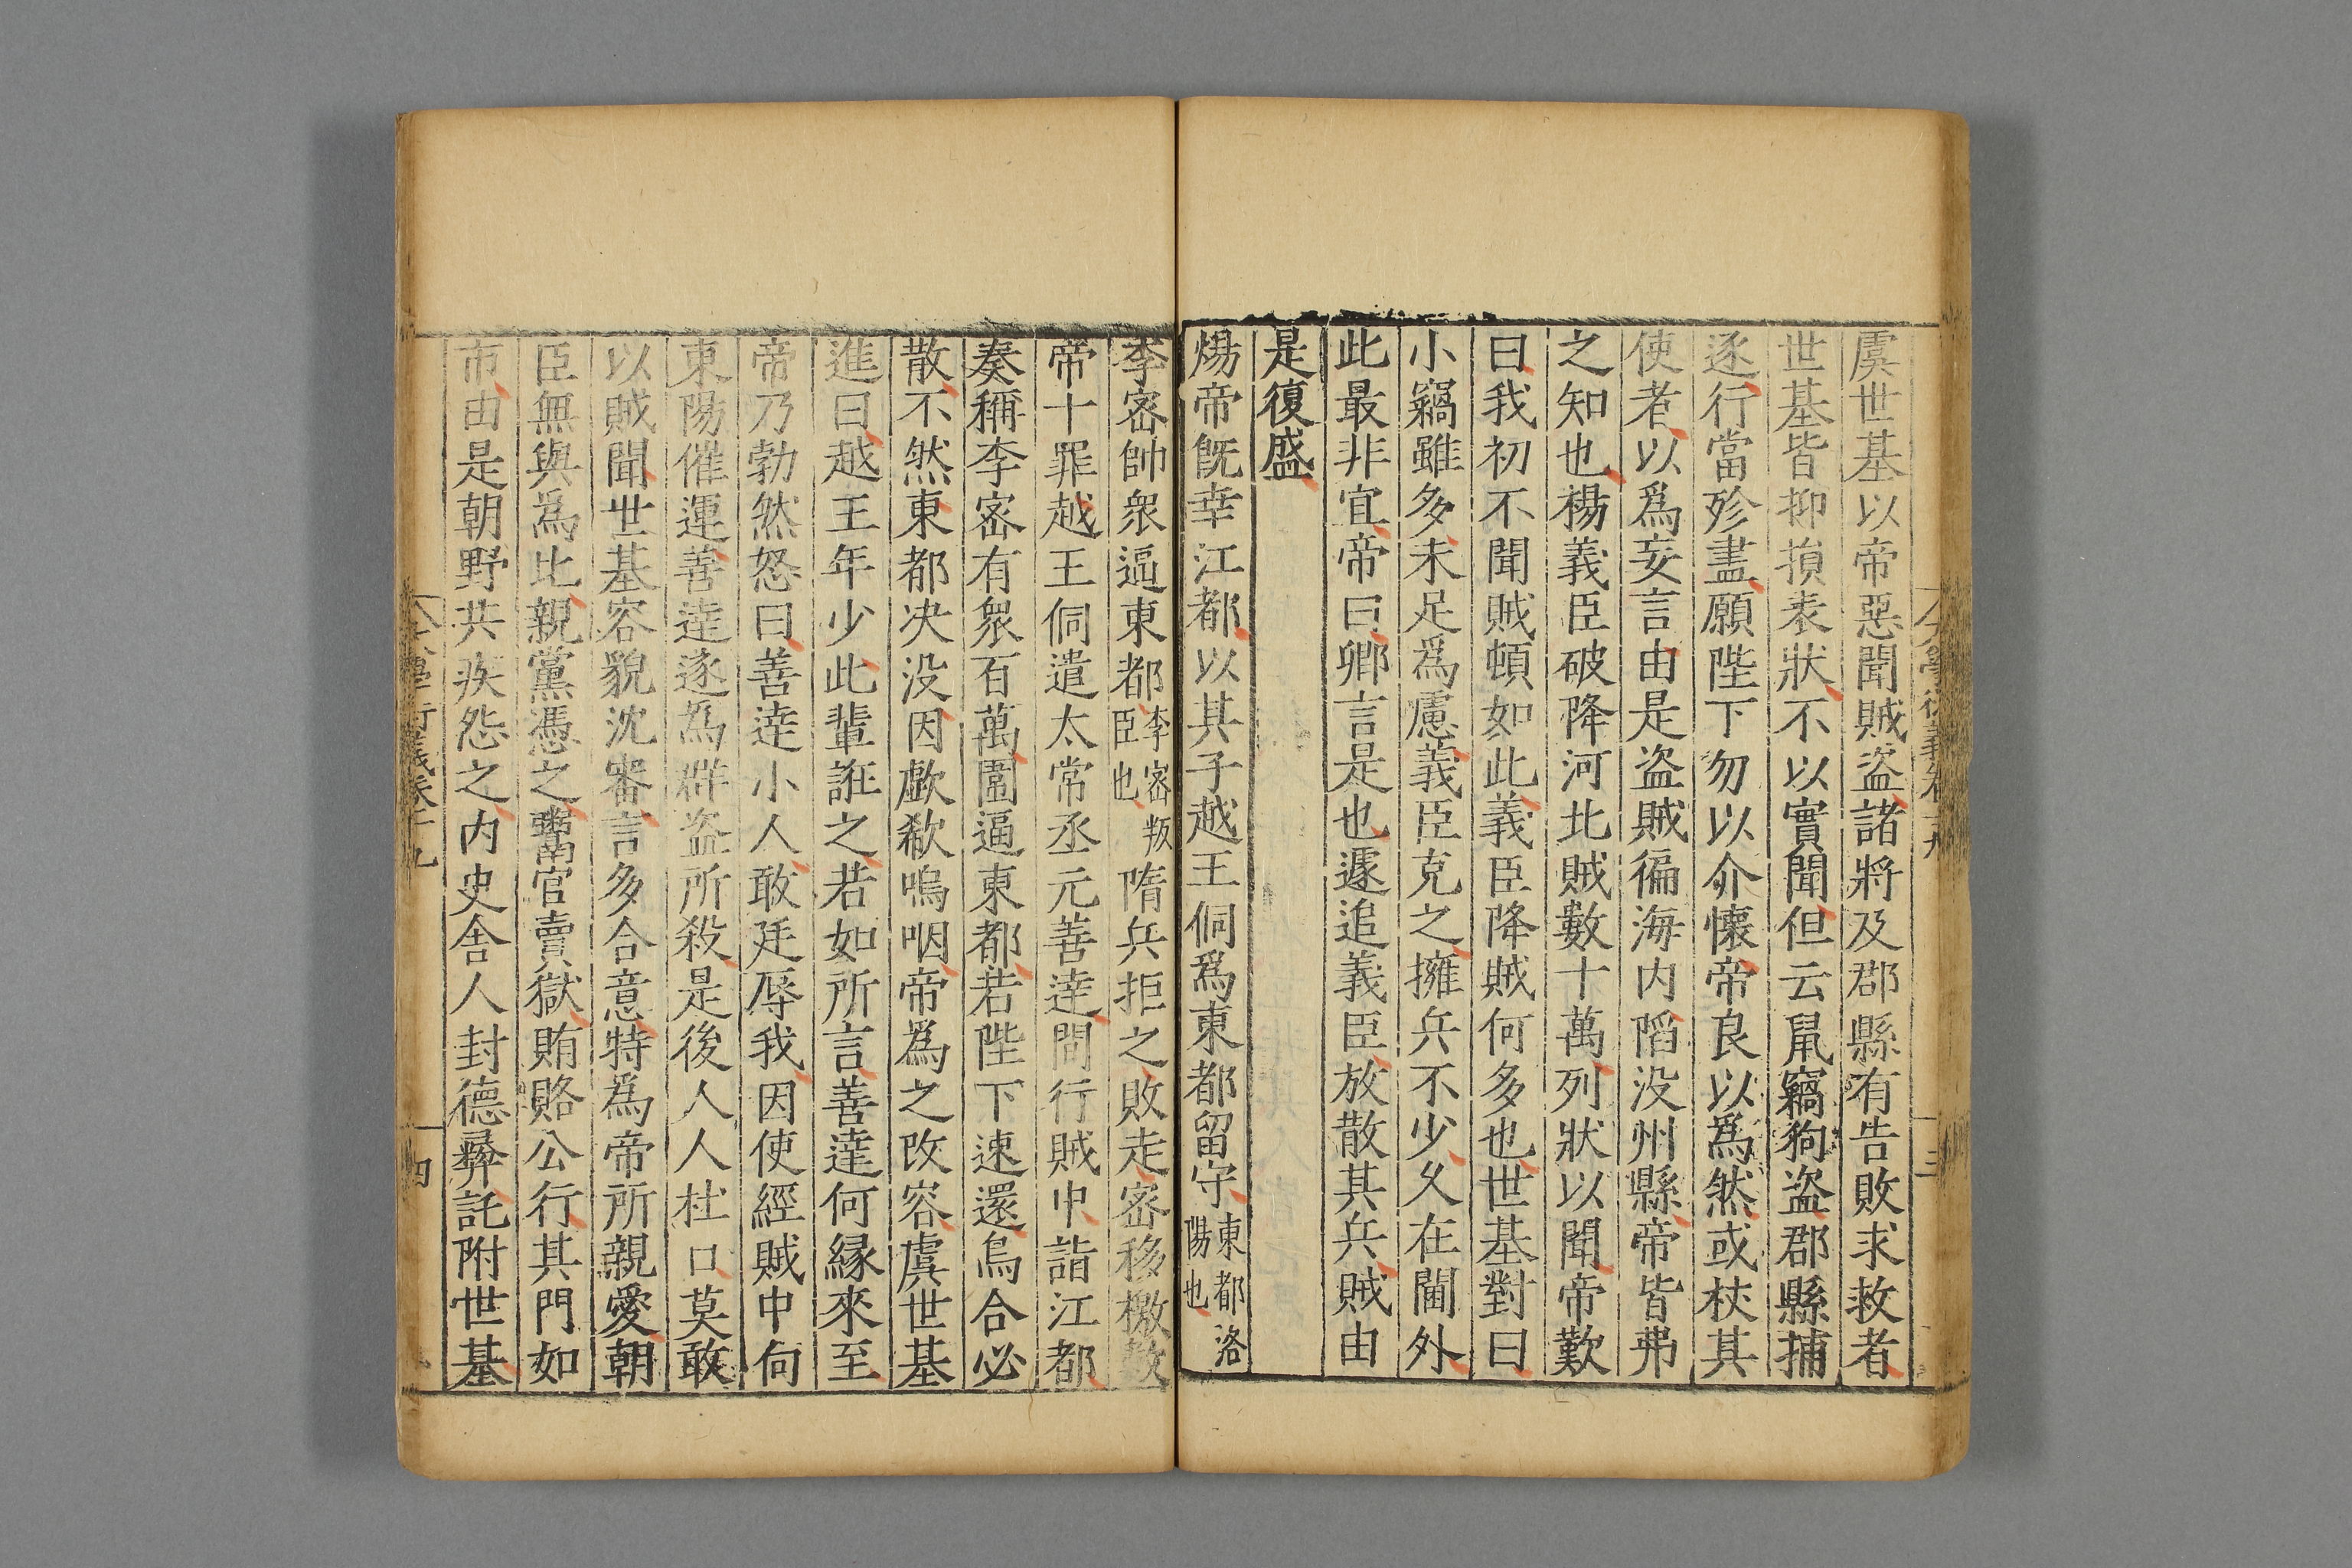 虞世基以帝惡聞賊盜諸將及郡縣有告敗求救者
世基皆抑損表狀不以實聞但云鼠竊狗盜郡縣捕
逐行當殄盡願陛下勿以介懷帝良以爲然或杖其
使者以爲妄言由是盜賊徧海內陷没州縣帝皆弗
之知也楊義臣破降河北賊數十萬列狀以聞帝歎
曰我初不聞賊頓如此義臣降賊何多也世基對曰
小竊雖多未足爲慮義臣克之擁兵不少乆在閫外
此最非宜帝曰卿言是也遽追義臣放散其兵賊由
是復盛
煬帝既幸江都以其子越王侗爲東都留守東都洛陽也
李密帥衆逼東都李密叛臣也隋兵拒之敗走密移檄數
帝十罪越王侗遣太常丞元善達間行賊中詣江都
奏稱李密有衆百萬圍逼東都若陛下速還烏合必
散不然東都决没因歔欷嗚咽帝爲之改容虞世基
進曰越王年少此輩誑之若如所言善達何縁來至
帝乃勃然怒曰善達小人敢廷辱我因使經賊中向
東陽催運善達逐爲群盜所殺是後人人杜口莫敢
以賊聞世基容貌沈審言多合意特爲帝所親愛朝
臣無與爲比親黨憑之鬻官賣獄賄賂公行其門如
市由是朝野共疾怨之内史舍人封德彝託附世基
大學衍義卷十九
四